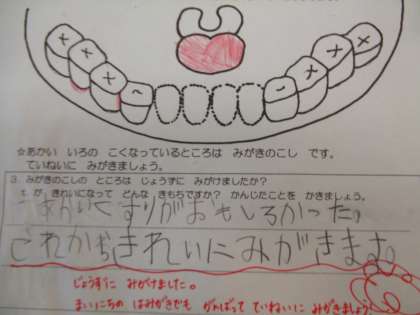 ☆あかい いろの こくなっているところは みがきのこし です。
ていねいに みがきましょう。
3. みがきのこしの ところは じょうずに みがけましたか？
が きれいになって どんな きもちですか？ かんじたことを かきましょう。
あかいくすりがおもしろかった。
これからきれいにみがきます。
じょうずに みがけました。
まいにちの はみがきでも がんばって ていねいに みがきましょう